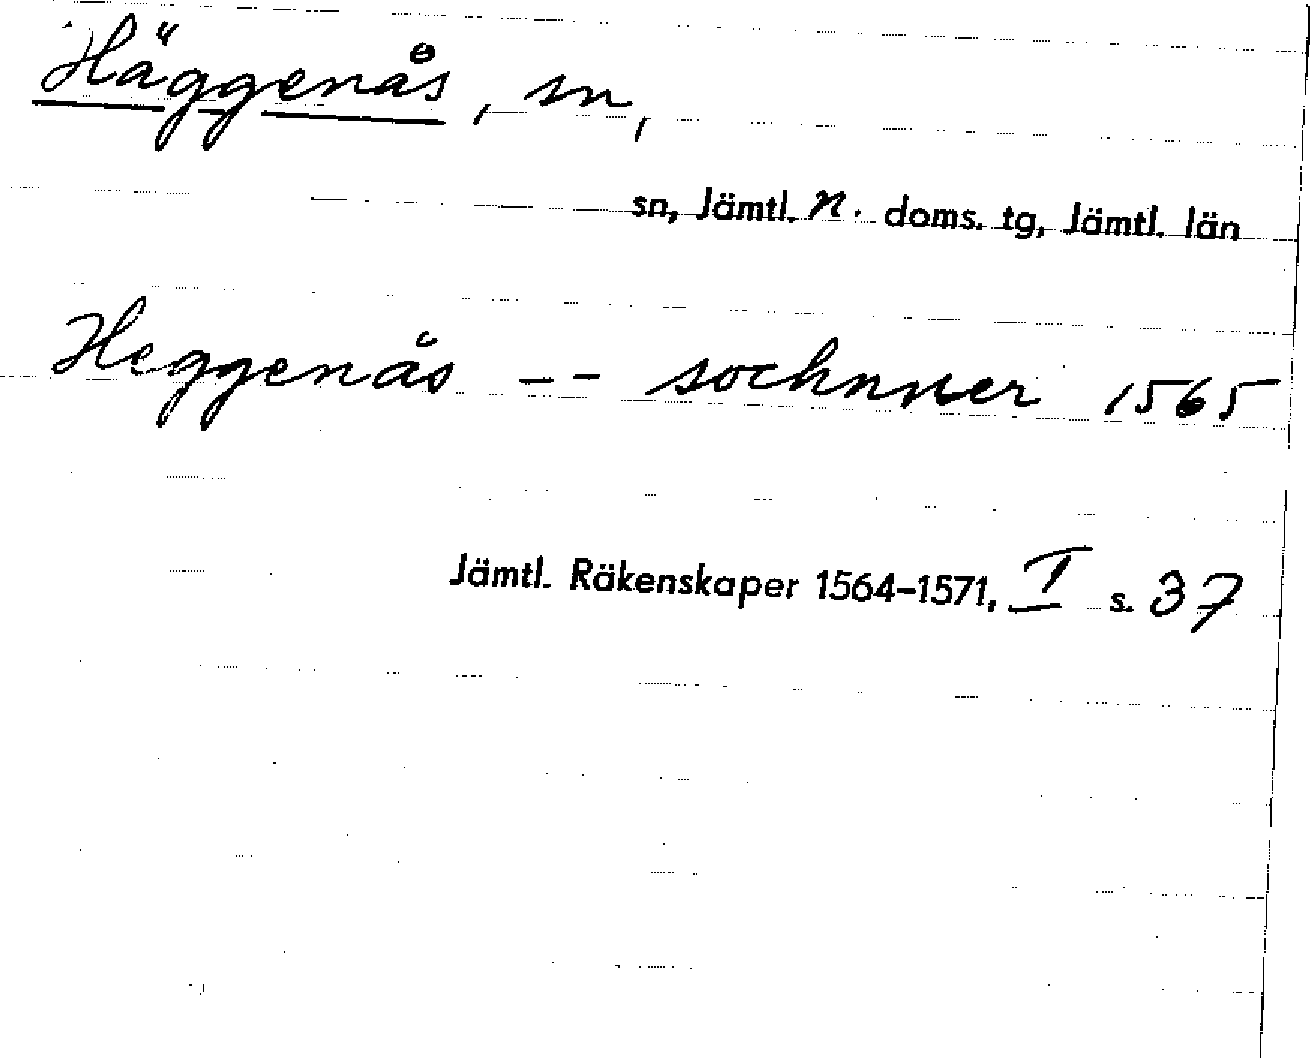 Häggenås, sn,
sn, Jämtl. n. doms. tg, Jämtl. län
Heggenås -- sochnner 1565
Jämtl. Räkenskaper 1564-1571, I s. 37